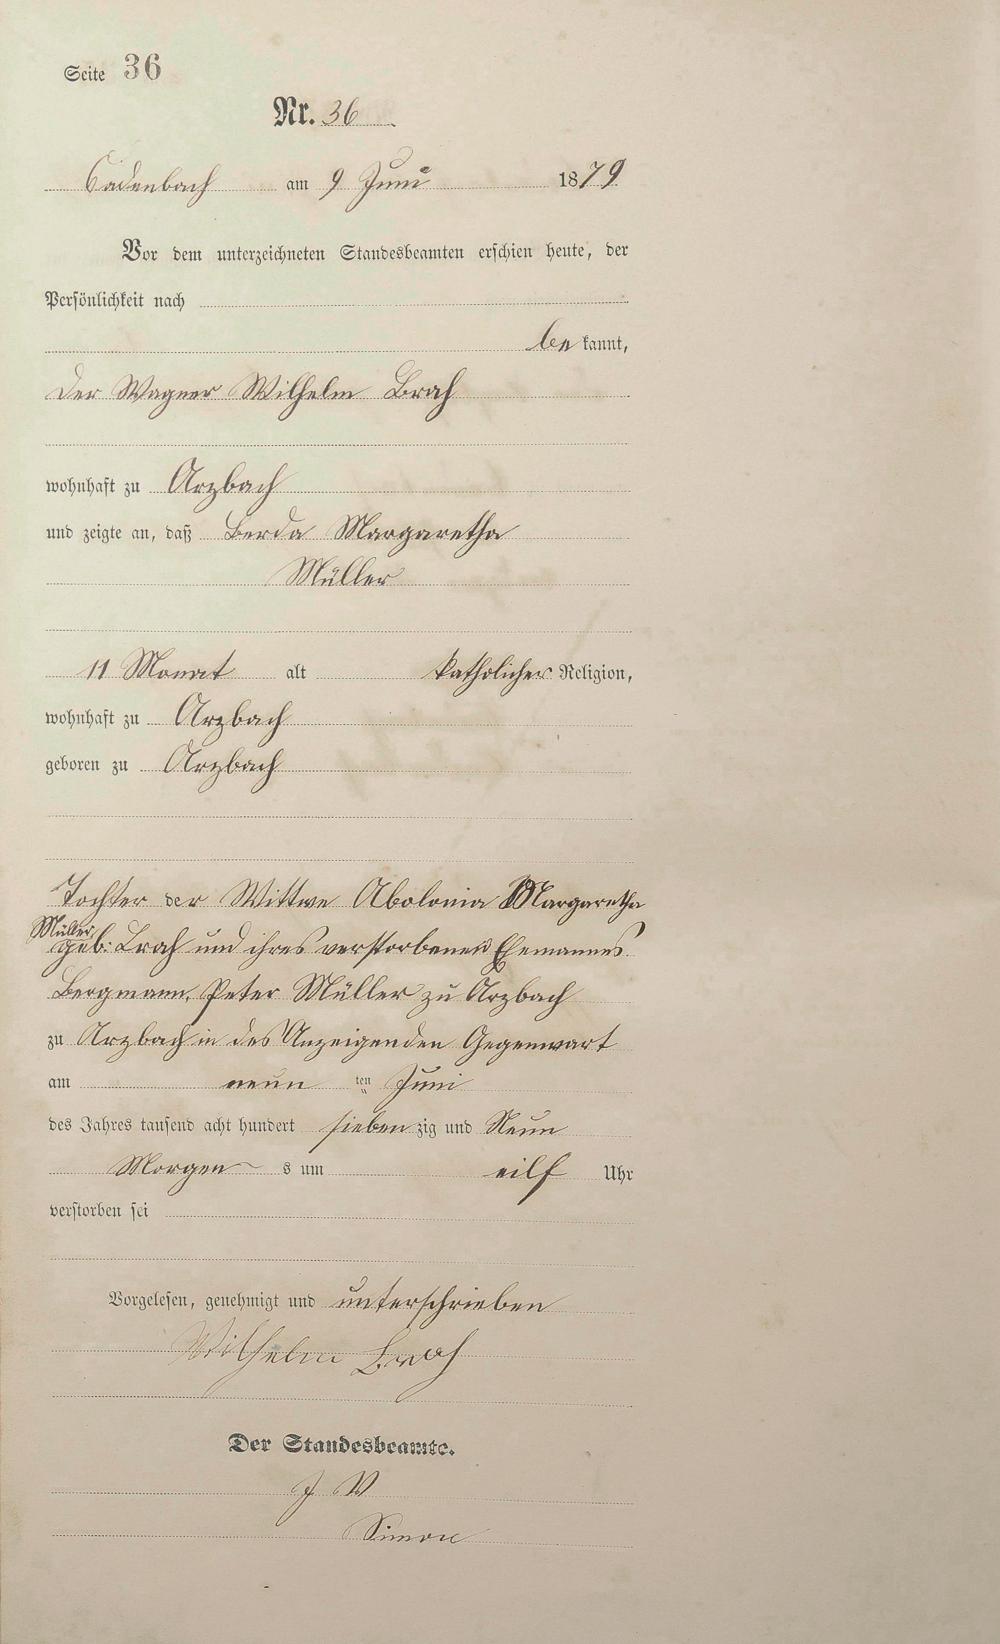 Seite 36
Nr. 36
Cadenbach am 9 Juni 1879
Vor dem unterzeichneten Standesbeamten erschien heute, der
Persönlichkeit nach
bekannt,
der Wagner Wilhelm Brah
wohnhaft zu Arzbach
und zeigte an, daß Berda Margaretha
Müller
11 Monat alt katholicher Religion,
wohnhaft zu Arzbach
geboren zu Arzbach
Tochter der Wittwe Abolonia Margaretha
Müller
geb: Brah und ihres verstorbenen Ehemannes
Bergmann, Peter Müller zu Arzbach
zu Arzbach in des Anzeigenden Gegenwart
am neun ten Juni
des Jahres tausend acht hundert siebenzig und Neun
Morgens um eilf Uhr
verstorben sei
Vorgelesen, genehmigt und unterschrieben
Wilhelm Brah
Der Standesbeamte.
J V
Simon